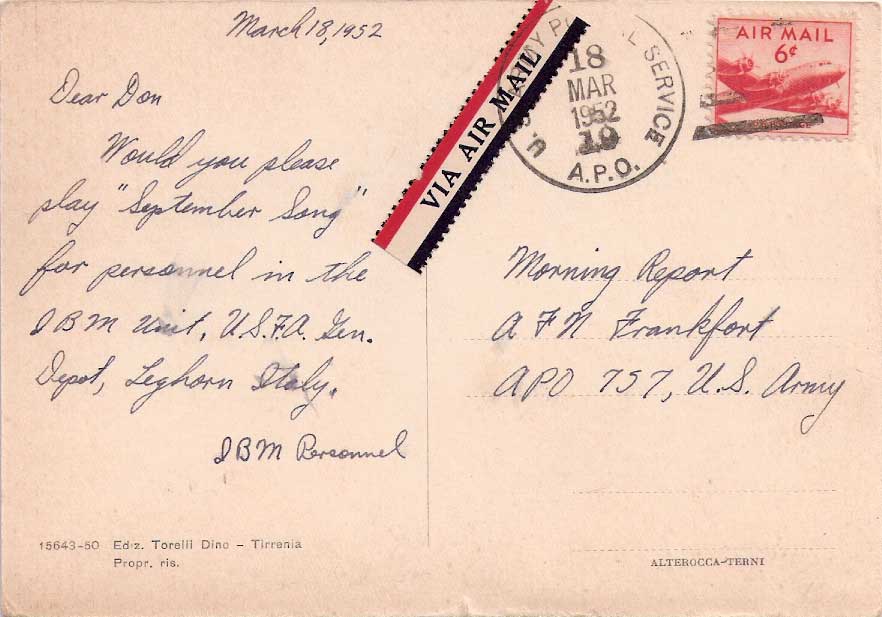 March 18, 1952
Dear Don
Would you please
play "September Song"
for personnel in the
IBM Unit, U.S.F.A. Gen.
Depot, Leghorn Italy.
IBM Personnel
15643-50 Ediz. Torelli Dino – Tirrenia
Propr. ris.
VIA AIR MAIL
U.S. ARMY POSTAL SERVICE
18
MAR
1952
19
A.P.O.
AIR MAIL
6¢
Morning Report
AFN Frankfort
APO 757, U.S. Army
ALTEROCCA-TERNI